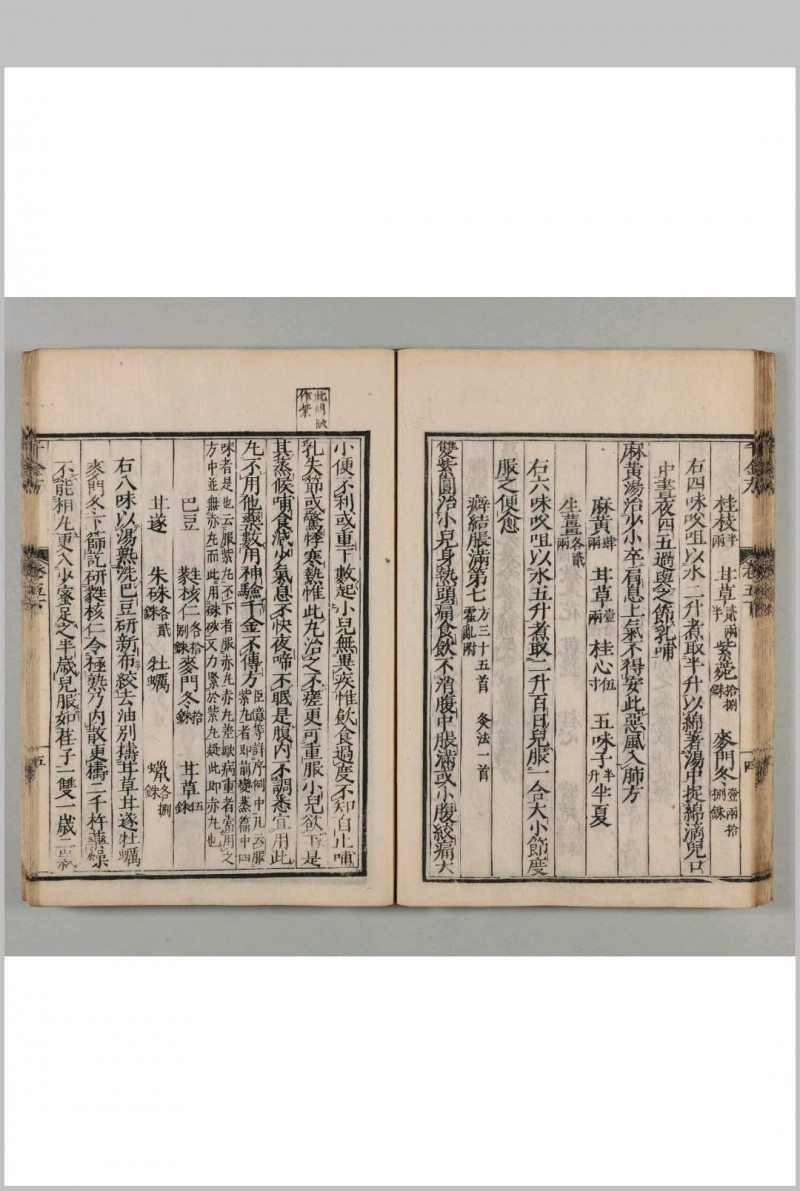 桂枝半兩 甘草貳兩半 紫菀拾捌銖 麥門冬壹兩拾捌銖
右四味㕮咀以水二升煮取半升以綿著湯中捉綿滴兒口
中晝夜四五過與之節乳哺
麻黃湯治少小卒肩息上氣不得安此惡風入肺方
麻黃肆兩 甘草壹兩 桂心伍寸 五味子半升 半夏
生薑各貳兩
右六味㕮咀以水五升煮取二升百日兒服一合大小節度
服之便愈
癖結脹滿第七方三十五首 灸法一首 霍亂附
雙紫圓治小兒身熱頭痛食飲不消腹中脹滿或小腹絞痛大
小便不利或重下數起小兒無異疾惟飲食過度不知自止哺
乳失節或驚悸寒熱惟此丸治之不瘥更可重服小兒欲下是
其蒸候哺食減少氣息不快夜啼不眠是腹內不調悉宜用此
丸不用他藥數用神驗千金不傳方臣億等詳序例中凡云服紫丸者即前變蒸篇中四
味者是也云服紫丸不下者服赤丸赤丸差快病重者當用之方中並無赤丸而此用硃砂又力緊於紫丸疑此即赤丸也
巴豆 蕤核仁各拾捌銖 麥門冬拾銖 甘草伍銖
甘遂 朱硃各貳銖 牡蠣 蠟各捌銖
右八味以湯熟洗巴豆研新布絞去油別擣甘草甘遂牡蠣
麥門冬下篩訖研蕤核仁令極熟乃內散更擣二千杵藥燥
不能相丸更入少蜜足之半歲兒服如荏子一雙一歲二歲
千金方
卷五下
四
五